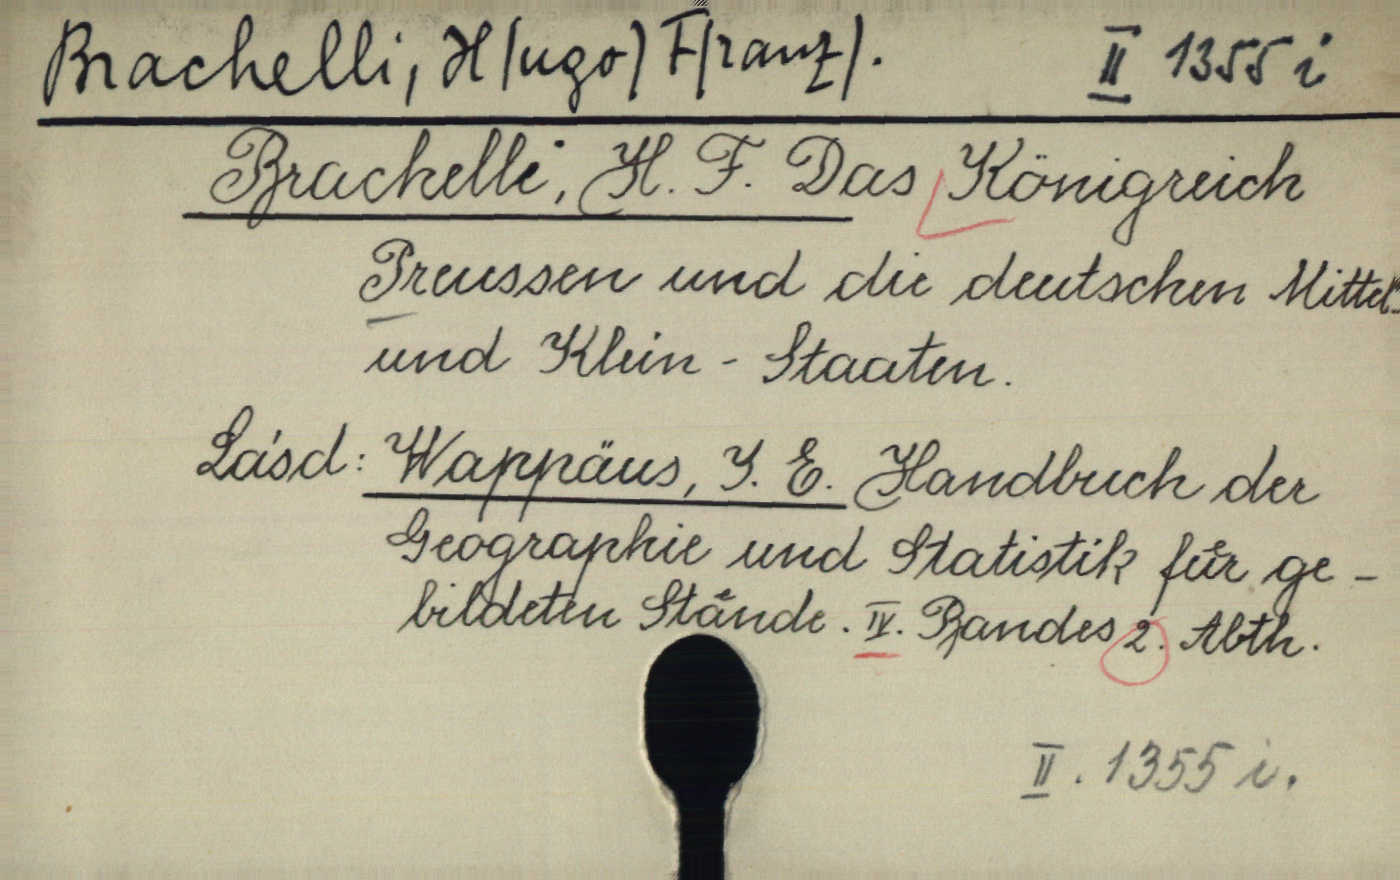 Brachelli, H(ugo) F(ranz). II 1355 i
Brachelli, H. F. Das Königreich
Preussen und die deutschen Mittel-
und Klein-Staaten.
Lásd: Wappäus, J. E. Handbuch der
Geographie und Statistik für ge-
bildeten Stände. IV. Bandes 2. Abth.
II. 1355 i.